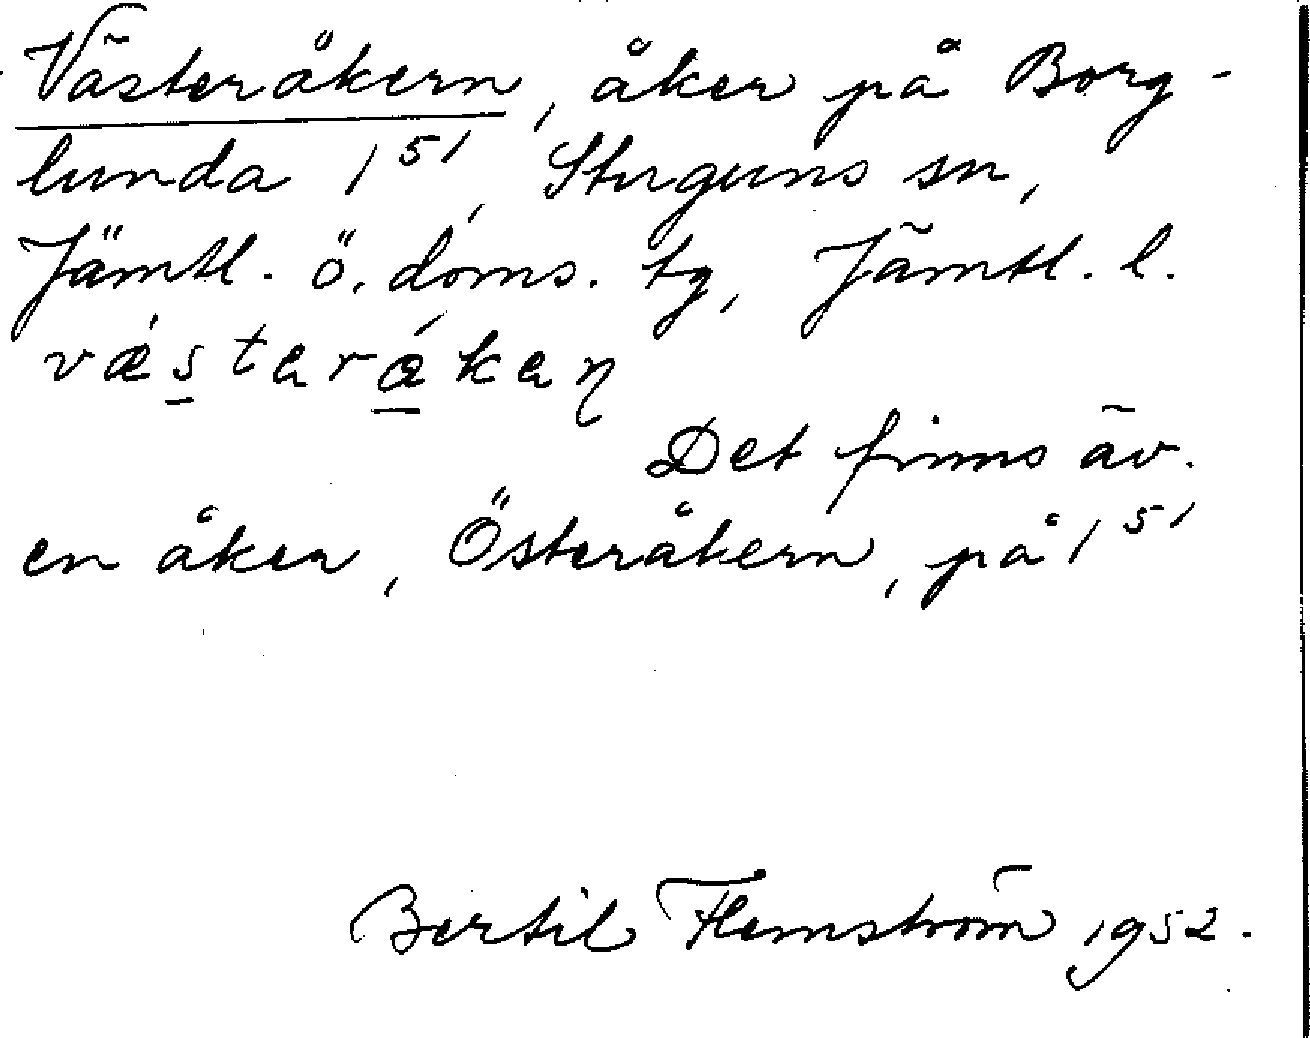 Västeråkern, åker på Borg-
lunda 1⁵¹, Stuguns sn,
Jämtl. ö. doms. tg, Jämtl. l.
Det finns äv.
en åker, Österåkern, på 1⁵¹
Bertil Flemström 1952.